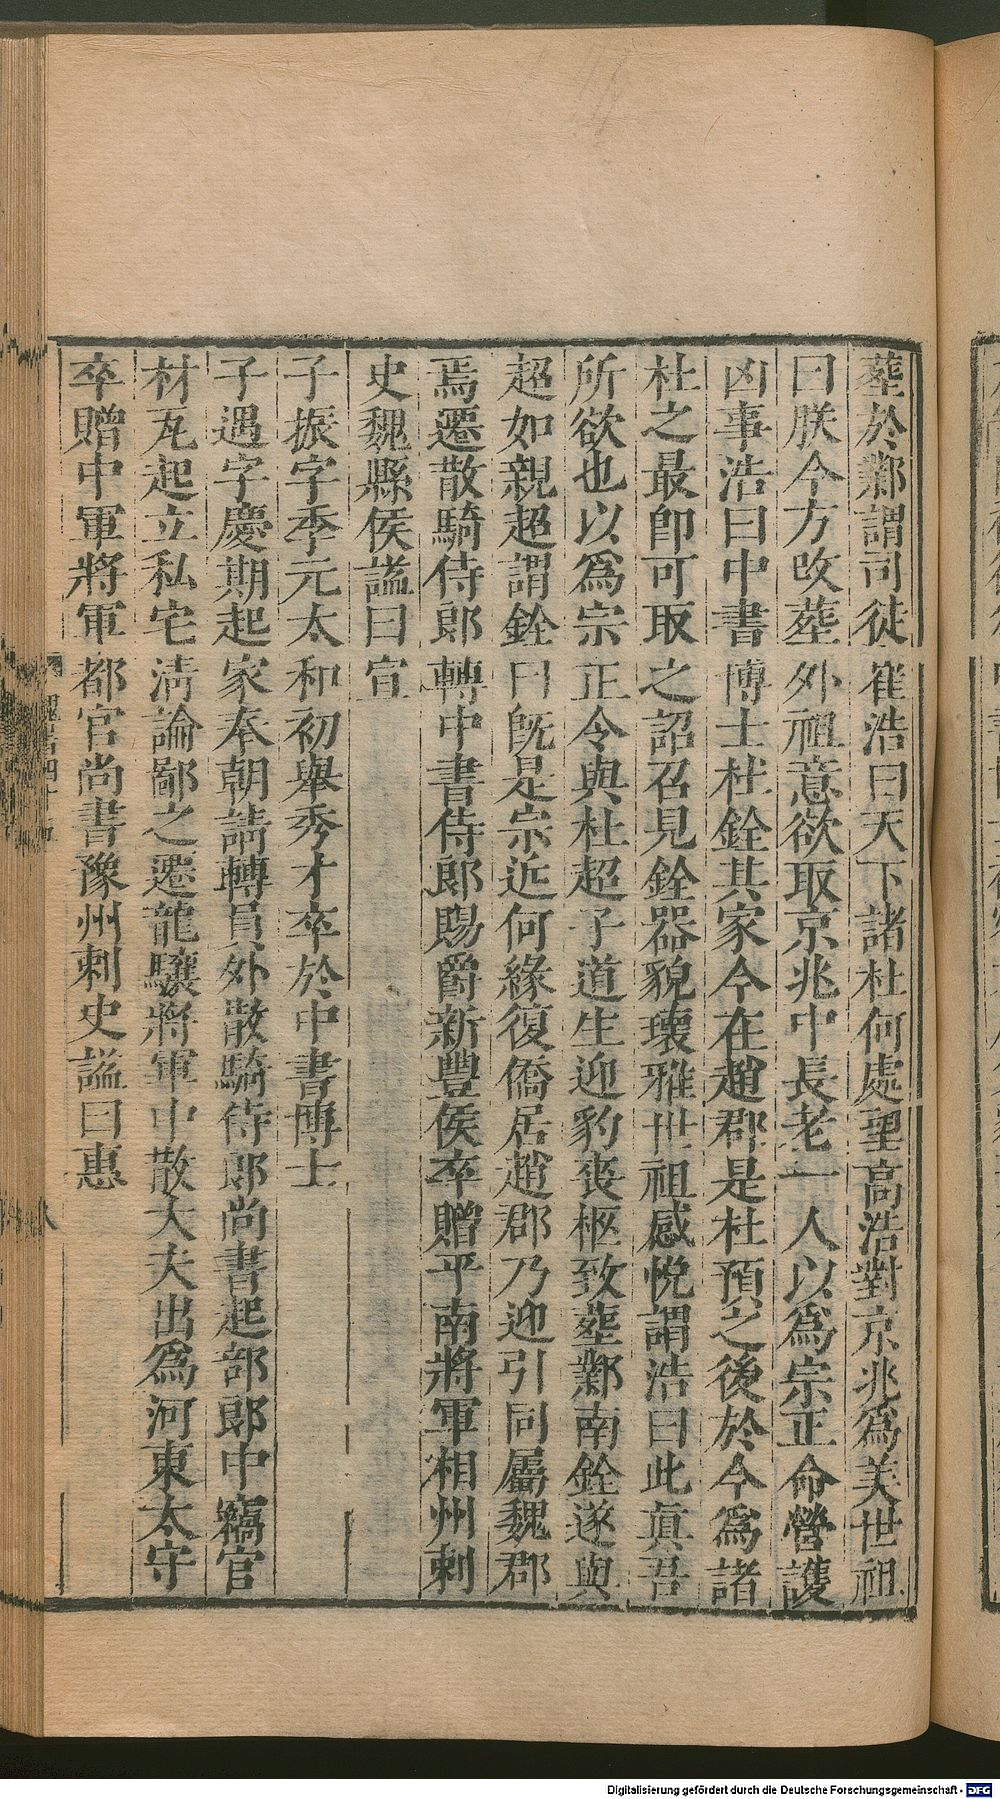 葬於鄴謂司徒崔浩曰天下諸杜何處望高浩對京兆爲美世祖
曰朕今方改葬外祖意欲取京兆中長老一人以爲宗正命營護
凶事浩曰中書博士杜銓其家今在趙郡是杜預之後於今爲諸
杜之最卽可取之詔召見銓器貌瓌雅世祖感悅謂浩曰此眞吾
所欲也以爲宗正令與杜超子道生迎豹喪柩致葬鄴南銓遂與
超如親超謂銓曰旣是宗近何緣復僑居趙郡乃迎引同屬魏郡
焉遷散騎侍郞轉中書侍郞賜爵新豐侯卒贈平南將軍相州刺
史魏縣侯謚曰宣
子振字季元太和初舉秀才卒於中書博士
子遇字慶期起家奉朝請轉員外散騎侍郞尚書起部郞中竊官
材瓦起立私宅淸論鄙之遷龍驤將軍中散大夫出爲河東太守
卒贈中軍將軍都官尚書豫州刺史謚曰惠
八
Digitalisierung gefördert durch die Deutsche Forschungsgemeinschaft - DFG